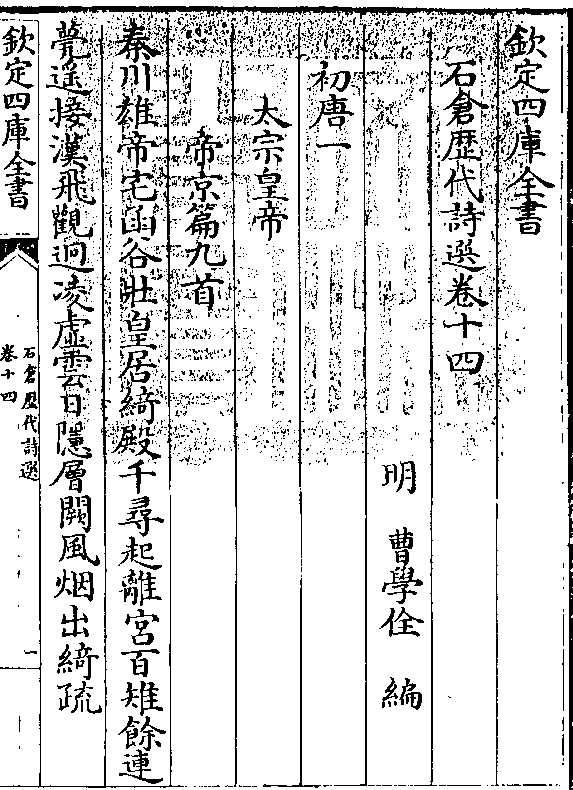 欽定四庫全書
石倉歴代詩選卷十四
明 曹學佺 編
初唐一
太宗皇帝
帝京篇九首
秦川雄帝宅函谷壯皇居綺殿千尋起離宮百雉餘連
甍遥接漢飛觀迥凌虚雲日隱層闕風烟出綺疏
欽定四庫全書
石倉歴代詩選
卷十四
一